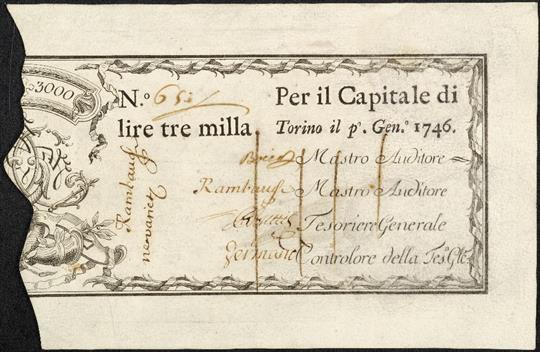 3000
N.º 651
Per il Capitale di
lire tre milla.
Torino il pº. Gen.º 1746.
Mastro Auditore
Rambaud Mastro Auditore
Tesoriere Generale
Controlore della Tes. Gle
Rambaud